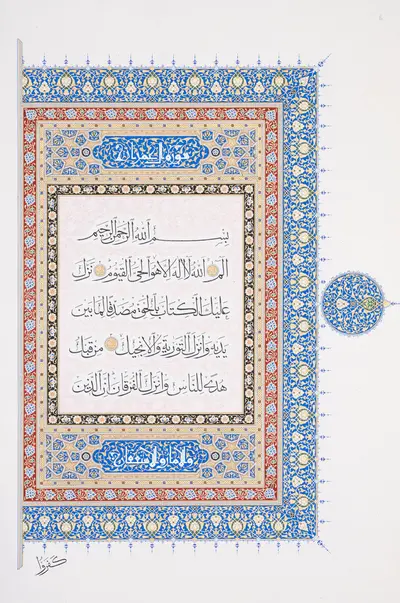 سورة آل عمران
بسم الله الرحمن الرحيم
الم الله لا اله الا هو الحي القيوم نزل
عليك الكتاب بالحق مصدقا لما بين
يديه وانزل التورية والانجيل من قبل
هدى للناس وانزل الفرقان ان الذين
كفروا